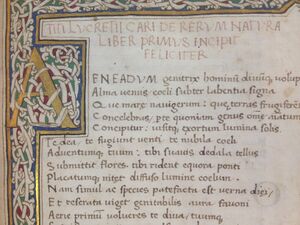 TITI LUCRETII CARI DE RERUM NATURA
LIBER PRIMUS INCIPIT
FELICITER
AENEADUM genitrix hominũ divũq, voluptas
Alma venus coeli subter labentia signa
Quae mare navigerum: que, terras frugiferẽs
Concelebras, p te quoniam genus omẽ animãtum
Concipitur: visitq, exortum lumina solis.
Te dea, te fugiunt venti: te nubila coeli
Adventumq, tuum: tibi suavis dedala tellus
Submittit flores. tibi rident equora ponti
Placatumq, nitet diffuso lumine coelum.
Nam simul ac species patefacta est verna diei,
Et reserata viget genitabilis aura favoni
Aerie primũ volucres te diva, tuumq,